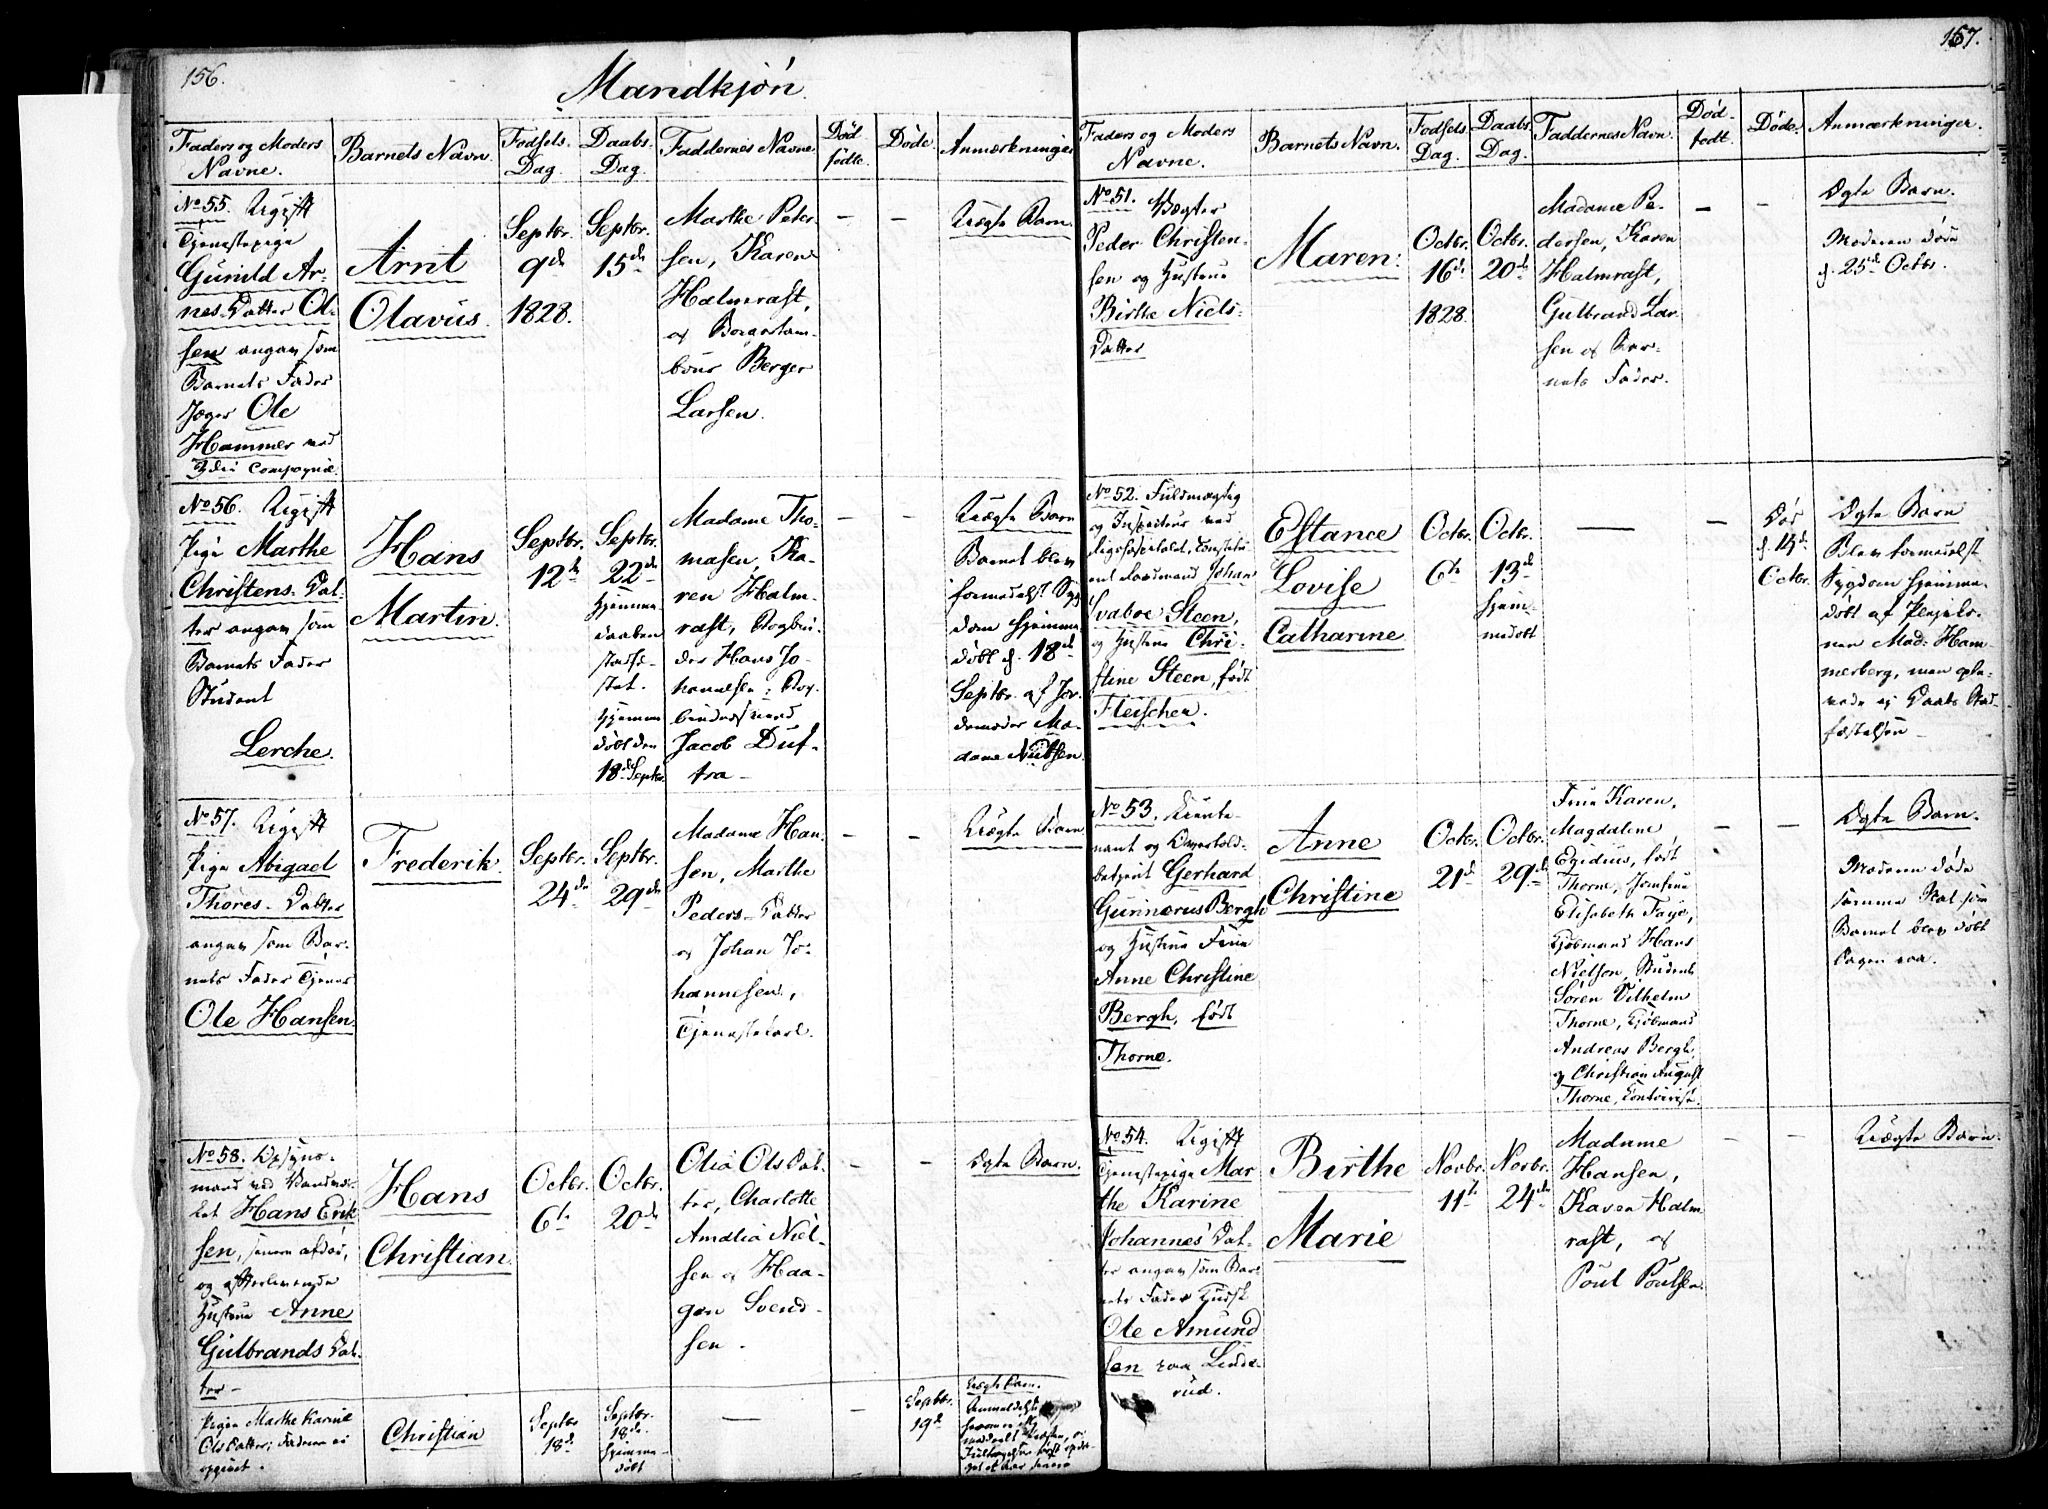 156.
Mandkjøn.
Faders og Moders
Navne.
Barnets Navn.
Fødsels
Dag.
Daabs
Dag.
Faddernes Navne.
Død
fødte.
Døde.
Anmærkninger
No 55. Ugift
Tjenestepige
Gunild Ar-
nes Datter Ol-
sen angav som
Barnets Fader
Jæger Ole
Hammer ved
Compagnie.
Arnt
Olavus.
Septbr.
9de
1828.
Septbr.
15de
Marthe Peter-
sen, Karen
Halmrast,
og Borgertam-
bour Berger
Larsen.
—
—
Uægte Barn.
No 56. Ugift
Pige Marthe
Christens Dat-
ter angav som
Barnets Fader
Student
Lerche.
Hans
Martin.
Septbr.
12te
Septbr.
22de
Hjemme-
daaben
stadfæ-
stet.
Hjemme
døbt den
18de Septbr.
Madame Tho-
masen, Ka-
ren Halm-
rast, Bogbin-
der Hans Jo-
hannesen; Bog-
bindersvend
Jacob Duf-
tra —
—
—
Uægte Barn
Barnet blev
formedelst Syg-
dom hjemme-
døbt d. 18de
Septbr. af Jor-
demoder Ma-
dame Nutsen.
No 57. Ugift
Pige Abigael
Thores Datter
angav som Bar-
nets Fader Tjener
Ole Hansen.
Frederik.
Septbr.
24de
Septbr.
29de
Madame Han-
sen, Marthe
Peders Datter
og Johan Jo-
hannesen,
Tjenestekarl.
—
—
Uægte Barn.
No 58. Opsyns-
mand ved
Hans Erik
sen, senere afdød,
og efterlevende
Hustrue Anne
Gulbrands Dat-
ter —
Hans
Christian.
Octbr.
6te
Octbr.
20de
Olia Ols Dat-
ter, Charlotte
Amalia Niel-
sen og Haa-
gen Svend-
sen.
—
—
Ægte Barn.
Pigen Marthe Karine
Ols Datter; Faderen ei
opgivet.
Christian
Septbr
18de
Septbr.
18de
hjemme-
døbt
—
—
Septbr.
19de
Uægte Barn.
157.
Faders og Moders
Navne.
Barnets Navn.
Fødsels
Dag.
Daabs
Dag.
Faddernes Navn.
Død-
født.
Døde.
Anmærkninger.
No 51. Vægter
Peder Christen-
sen og Hustrue
Birthe Niels-
Datter
Maren:
Octbr.
16de
1828.
Octbr.
20de
Madame Pe-
dersen, Karen
Halmrast,
Gulbrand Lar-
sen og Bar-
nets Fader.
—
—
Ægte Barn.
Moderen døde
d. 25de Octbr.
No 52. Fuldmægtig
og Inspecteur ved
Johan
Svaboe Steen,
og Hustrue Chri-
stine Steen, født
Fleischer.
Estance
Lovise
Catharine
Octbr.
6te
Octbr.
13de
hjem-
medøbt
—
—
Død
d. 14de
Octbr.
Ægte Barn
Blev formedelst
Sygdom hjemme-
døbt af Plejeko-
nen Mad: Ham-
merberg, men ople-
vede ej Daabs Stad-
fæstelsen —
No 53. Lieute-
nant og Overtold-
betjent Gerhard
Gunnerus Bergh
og Hustrue Frue
Anne Christine
Bergh, født
Thorne.
Anne
Christine
Octbr.
21de
Octbr.
29de
Frue Karen,
Magdaline
Egidius, født
Thorne, Jomfrue
Elisabeth Faye,
Kjøbmand Hans
Nielson, Student
Søren Vilhelm
Thorne, Kjøbmand
Andreas Bergh,
og Christian August
Thorne, Contorist.
—
—
Ægte Barn.
Moderen døde
samme Nat som
Barnet blev døbt
Dagen paa.
No 54. Ugift
Tjenestepige Mar
the Karine
Johannes Dat-
ter angav som Bar-
nets Fader Huusm.
Ole Amund
sen paa Linde-
rud.
Birthe
Marie
Novbr.
11te
Novbr.
24de
Madame
Hansen,
Karen Halm
rast, og
Poul Poulsen.
—
—
Uægte Barn.